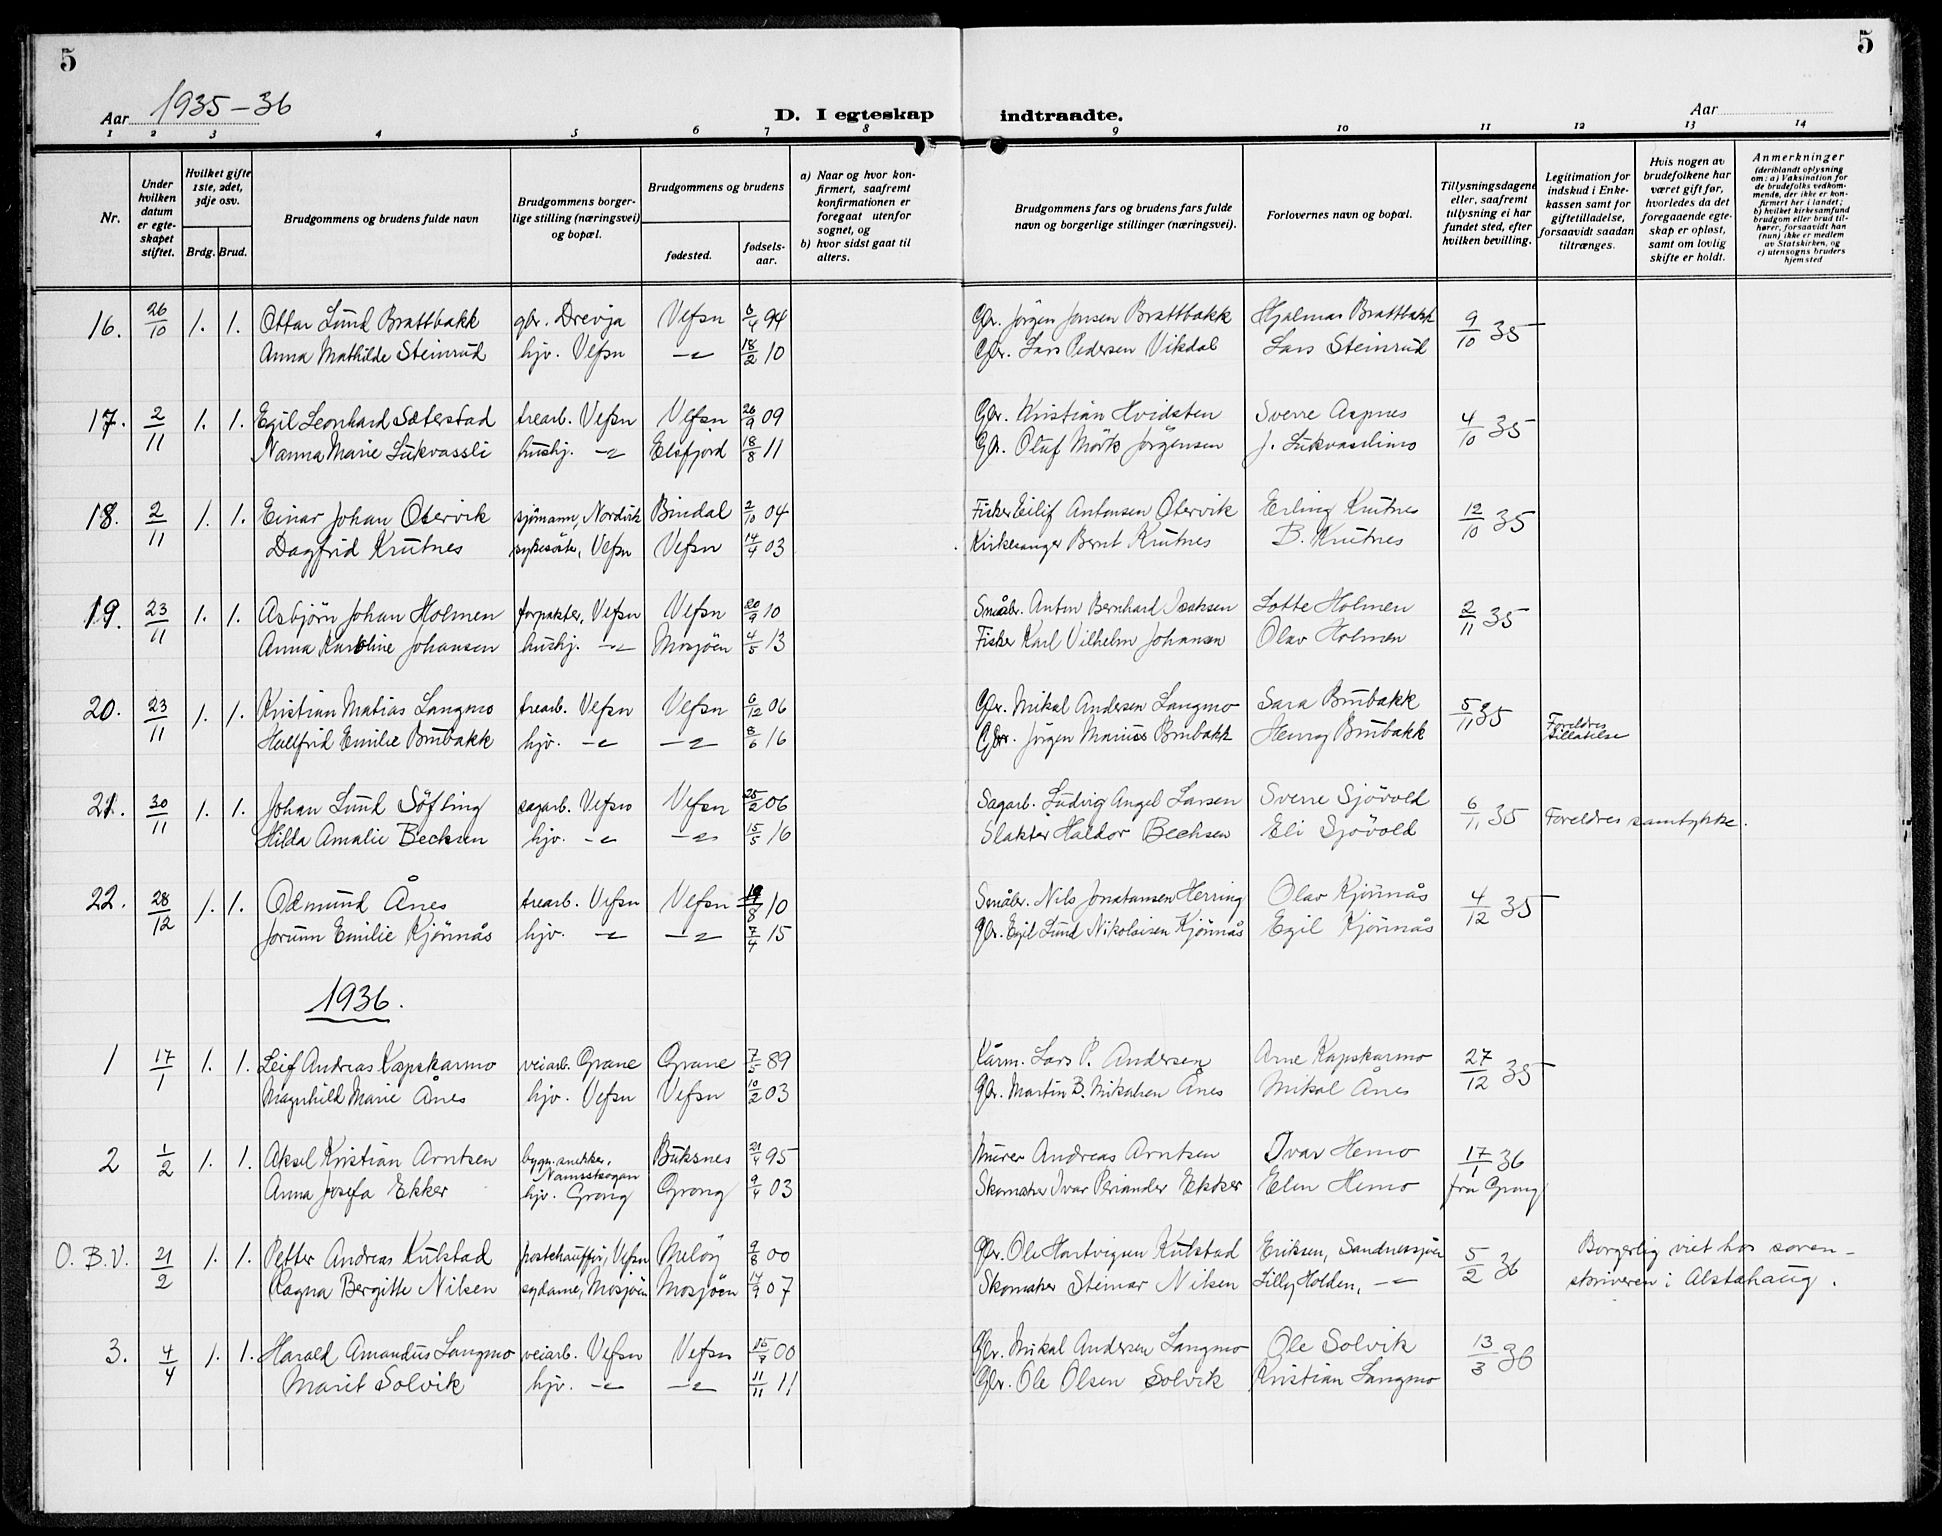 5
5
Aar 1935-36
D. I egteskap indtraadte.
Aar
1 2 3 4 5 6 7 8 9 10 11 12 13 14
Nr.
Under hvilken datum er egteskapet stiftet.
Hvilket gifte 1ste, 2det, 3dje osv.
Brdg. Brud.
Brudgommens og brudens fulde navn
Brudgommens borgerlige stilling (næringsvei) og bopæl.
Brudgommens og brudens
fødested.
fødselsaar.
a) Naar og hvor konfirmert, saafremt konfirmationen er foregaat utenfor sognet, og
b) hvor sidst gaat til alters.
Brudgommens fars og brudens fars fulde navn og borgerlige stillinger (næringsvei).
Forlovernes navn og bopæl.
Tillysningsdagene eller, saafremt tillysning ei har fundet sted, efter hvilken bevilling.
Legitimation for indskud i Enkekassen samt for giftetilladelse, forsaavidt saadan tiltrænges.
Hvis nogen av brudefolkene har været gift før, hvorledes da det foregaaende egteskap er opløst, samt om lovlig skifte er holdt.
Anmerkninger (deriblandt oplysning om: a) Vaksination for de brudefolks vedkommende, der ikke er konfirmert her i landet; b) hvilket kirkesamfund brudgom eller brud tilhører, forsaavidt han (hun) ikke er medlem av Statskirken, og c) utensogns bruders hjemsted
16. 26/10 1. 1. Ottar Lund Brattbakk gbr. Drevja Vefsn 6/4 94 Gbr. Jørgen Jensen Brattbakk Hjalmar Brattbakk 9/10 35
Anna Mathilde Steinrud hjv. Vefsn -"- 18/2 10 Gbr. Lars Pedersen Vikdal Lars Steinrud
17. 2/11 1. 1. Egil Leonhard Sæterstad trearb. Vefsn Vefsn 26/9 09 Gbr. Kristian Hvidsten Sverre Aspnes 4/10 35
Nanna Marie Lukvassli hushj. -"- Elsfjord 18/8 11 Gbr. Oluf Mörk Jørgensen J. Lukvasslimo
18. 2/11 1. 1. Einar Johan Otervik sjömann, Nordvik Bindal 2/10 04 Fisker Eilif Antonsen Otervik Erling Krutnes 12/10 35
Dagfrid Krutnes sykesöster, Vefsn Vefsn 14/4 03 Kirkesanger Bernt Krutnes B. Krutnes
19. 23/11 1. 1. Asbjörn Johan Holmen forpakter, Vefsn Vefsn 20/9 10 Småbr. Anton Bernhard Isaksen Lotte Holmen 2/11 35
Anna Karoline Johansen hushj. -"- Mosjöen 4/5 13 Fisker Karl Vilhelm Johansen Olav Holmen
20. 23/11 1. 1. Kristian Matias Langmo trearb. Vefsn Vefsn 6/12 06 Gbr. Mikal Andersen Langmo Sara Brubakk 5/11 35
Hallfrid Emilie Brubakk hjv. -"- -"- 8/6 16 Gbr. Jörgen Marius Brubakk Henry Brubakk Foreldres tillatelse
21. 30/11 1. 1. Johan Lund Söfting sagarb. Vefsn Vefsn 25/2 06 Sagarb. Ludvig Angel Larsen Sverre Sjövold 6/11 35 Foreldres samtykke.
Hilda Amalie Bechsen hjv. -"- -"- 15/5 16 Slakter Haldor Bechsen Eli Sjövold
22. 28/12 1. 1. Odmund Ånes trearb. Vefsn Vefsn 19/8 10 Småbr. Nils Jonatansen Herring Olav Kjönnås 4/12 35
Jorunn Emilie Kjönnås hjv. -"- -"- 7/4 15 Gbr. Egil Lund Nikolaisen Kjönnås Egil Kjönnås
1936.
1 17/1 1. 1. Leif Andreas Kapskarmo veiarb. Grane Grane 7/5 89 Kårm. Lars P. Andersen Arne Kapskarmo 27/12 35
Magnhild Marie Ånes hjv. Vefsn Vefsn 10/2 03 Gbr. Martin B. Mikalsen Ånes Mikal Ånes
2 1/2 1. 1. Aksel Kristian Arntsen bygn.snekker, Namsskogan Buksnes 21/4 95 Murer Andreas Arntsen Ivar Hemo 17/1 36
Anna Josefa Ekker hjv. Grong Grong 9/4 03 Skomaker Ivar Periander Ekker Elen Hemo fra Grong
O. B.V. 21/2 1. 1. Petter Andreas Kulstad postchauffør, Vefsn Meløy 9/8 00 Gbr. Ole Hartvigsen Kulstad Eriksen, Sandnessjöen 5/2 36 Borgerlig viet hos soren-
Ragna Bergitte Nilsen sydame, Mosjöen Mosjöen 14/9 07 Skomaker Steinar Nilsen Lilly Holden, -"- skriveren i Alstahaug.
3. 4/4 1. 1. Harald Amandus Langmo veiarb. Vefsn Vefsn 15/7 00 Gbr. Mikal Andersen Langmo Ole Solvik 13/3 36
Marit Solvik hjv. -"- -"- 11/11 11 Gbr. Ole Olsen Solvik Kristian Langmo